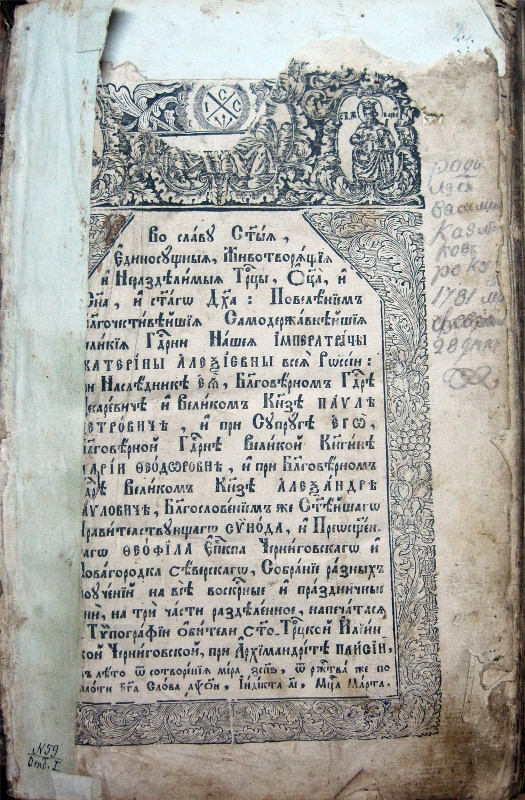 І С С
Во славу Ст҃ыѧ,
Єдиносꙋщныѧ, Животворѧщїѧ
и Нераздѣлимыѧ Трⷪ҇цы, Ѻц҃а, и
Сн҃а, и ст҃агѡ Дх҃а: Повелѣнїемъ
благочестивѣйшїѧ Самодержавнѣйшїѧ
великїѧ Гдⷭ҇рни Нашеѧ Імператрїцы
Єкатерїны Алеѯїевны всеѧ Рѡссіи:
при Наслѣдникѣ єѧ̀, Бл҃говѣрномъ Гдⷭ҇рѣ
Цесаревичѣ и Великомъ Кнѧ҃зѣ ПАѴЛѢ
ПЕТРОВИЧѢ, и при Сꙋпрꙋгѣ єгѡ̀,
бл҃говѣрной Гдⷭ҇рнѣ Великой Кнѧгинѣ
МАРІИ ѲЕОДѠРОВНѢ, и при Бл҃говѣрномъ
Гдⷭ҇рѣ Великомъ Кнѧ҃зѣ АЛЕѮАНДРѢ
ПАѴЛОВИЧѢ, Бл҃гословенїемъ же Ст҃ѣйшагѡ
Правителствꙋющагѡ СѴНОДА, и Преѡсщ҃ен-
нагѡ ѲЕОФІЛА Єпⷭ҇кпа Черниговскагѡ и
Новагородка Сѣверскагѡ, Собранїе разныхъ
поꙋченїй на всѣ воскрⷭ҇ныѧ и праздничныѧ
дни, на три части раздѣленное, напечатасѧ
в Тѷпографїи ѻбители Ст҃о-Трⷪ҇цкой Илїин-
ской Черниговской, при Архїмандрїтѣ ПАИСІИ,
въ лѣто ѿ сотворенїѧ мїра ҂зс҃пѳ, ѿ рж҃тва же по
плоти Бг҃а Слова, Індїкта, Мцⷭ҇а Марта.
роди
лся
Васили
ков
року
1781 м
28 дня
N 59
Отд. I